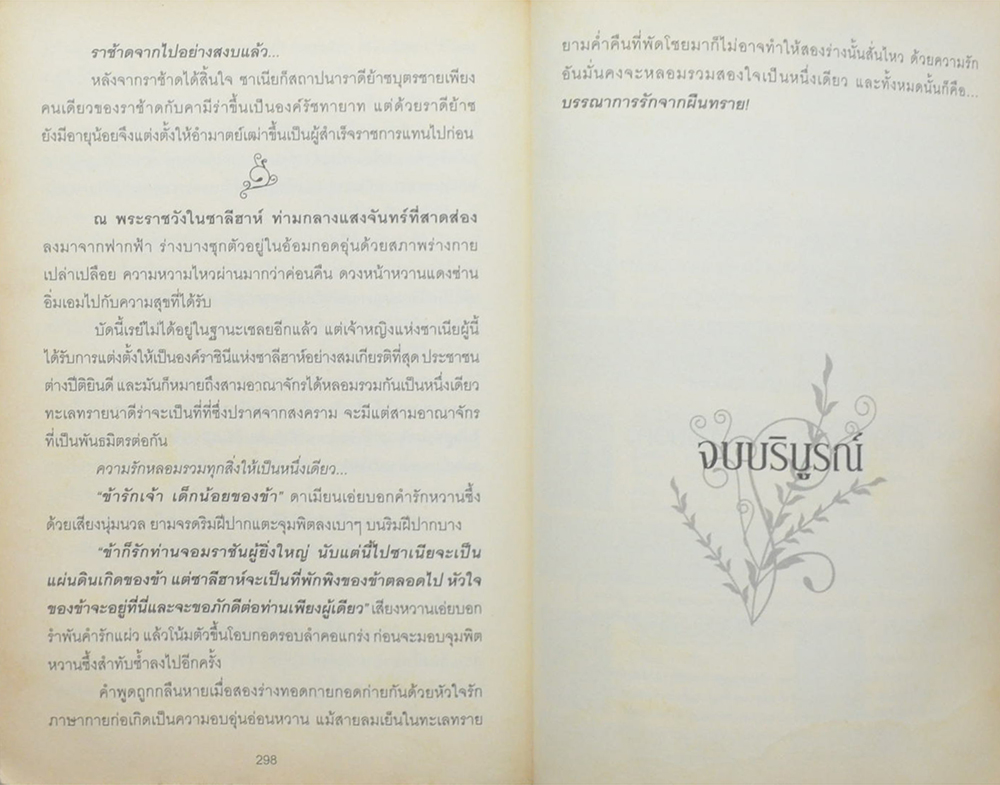 ราซ้าดจากไปอย่างสงบแล้ว...
หลังจากราซ้าดได้สิ้นใจ ซาเนียก็สถาปนาราดีย้าซบุตรชายเพียง
คนเดียวของราซ้าดกับคามีร่าขึ้นเป็นองค์รัชทายาท แต่ด้วยราดีย้าซ
ยังมีอายุน้อยจึงแต่งตั้งให้อำมาตย์เฒ่าขึ้นเป็นผู้สำเร็จราชการแทนไปก่อน
ณ พระราชวังในซาลีฮาห์ ท่ามกลางแสงจันทร์ที่สาดส่อง
ลงมาจากฟากฟ้า ร่างบางซุกตัวอยู่ในอ้อมกอดอุ่นด้วยสภาพร่างกาย
เปล่าเปลือย ความหวามไหวผ่านมากว่าค่อนคืน ดวงหน้าหวานแดงซ่าน
อิ่มเอมไปกับความสุขที่ได้รับ
บัดนี้เรย์ไม่ได้อยู่ในฐานะเชลยอีกแล้ว แต่เจ้าหญิงแห่งซาเนียผู้นี้
ได้รับการแต่งตั้งให้เป็นองค์ราชินีแห่งซาลีฮาห์อย่างสมเกียรติที่สุด ประชาชน
ต่างปีติยินดี และมันก็หมายถึงสามอาณาจักรได้หลอมรวมกันเป็นหนึ่งเดียว
ทะเลทรายนาดีร่าจะเป็นที่ที่ซึ่งปราศจากสงคราม จะมีแต่สามอาณาจักร
ที่เป็นพันธมิตรต่อกัน
ความรักหลอมรวมทุกสิ่งให้เป็นหนึ่งเดียว...
"ข้ารักเจ้า เด็กน้อยของข้า" ดาเมียนเอ่ยบอกคำรักหวานซึ้ง
ด้วยเสียงนุ่มนวล ยามจรดริมฝีปากแตะจุมพิตลงเบาๆ บนริมฝีปากบาง
"ข้าก็รักท่านจอมราชันผู้ยิ่งใหญ่ นับแต่นี้ไปซาเนียจะเป็น
แผ่นดินเกิดของข้า แต่ซาลีฮาห์จะเป็นที่พักพิงของข้าตลอดไป หัวใจ
ของข้าจะอยู่ที่นี่และจะขอภักดีต่อท่านเพียงผู้เดียว" เสียงหวานเอ่ยบอก
รำพันคำรักแผ่ว แล้วโน้มตัวขึ้นโอบกอดรอบลำคอแกร่ง ก่อนจะมอบจุมพิต
หวานซึ้งสำทับซ้ำลงไปอีกครั้ง
คำพูดถูกกลืนหายเมื่อสองร่างทอดกายกอดก่ายกันด้วยหัวใจรัก
ภาษากายก่อเกิดเป็นความอบอุ่นอ่อนหวาน แม้สายลมเย็นในทะเลทราย
298
ยามค่ำคืนที่พัดโชยมาก็ไม่อาจทำให้สองร่างนั้นสั่นไหว ด้วยความรัก
อันมั่นคงจะหลอมรวมสองใจเป็นหนึ่งเดียว และทั้งหมดนั้นก็คือ...
บรรณาการรักจากผืนทราย!
จบบริบูรณ์